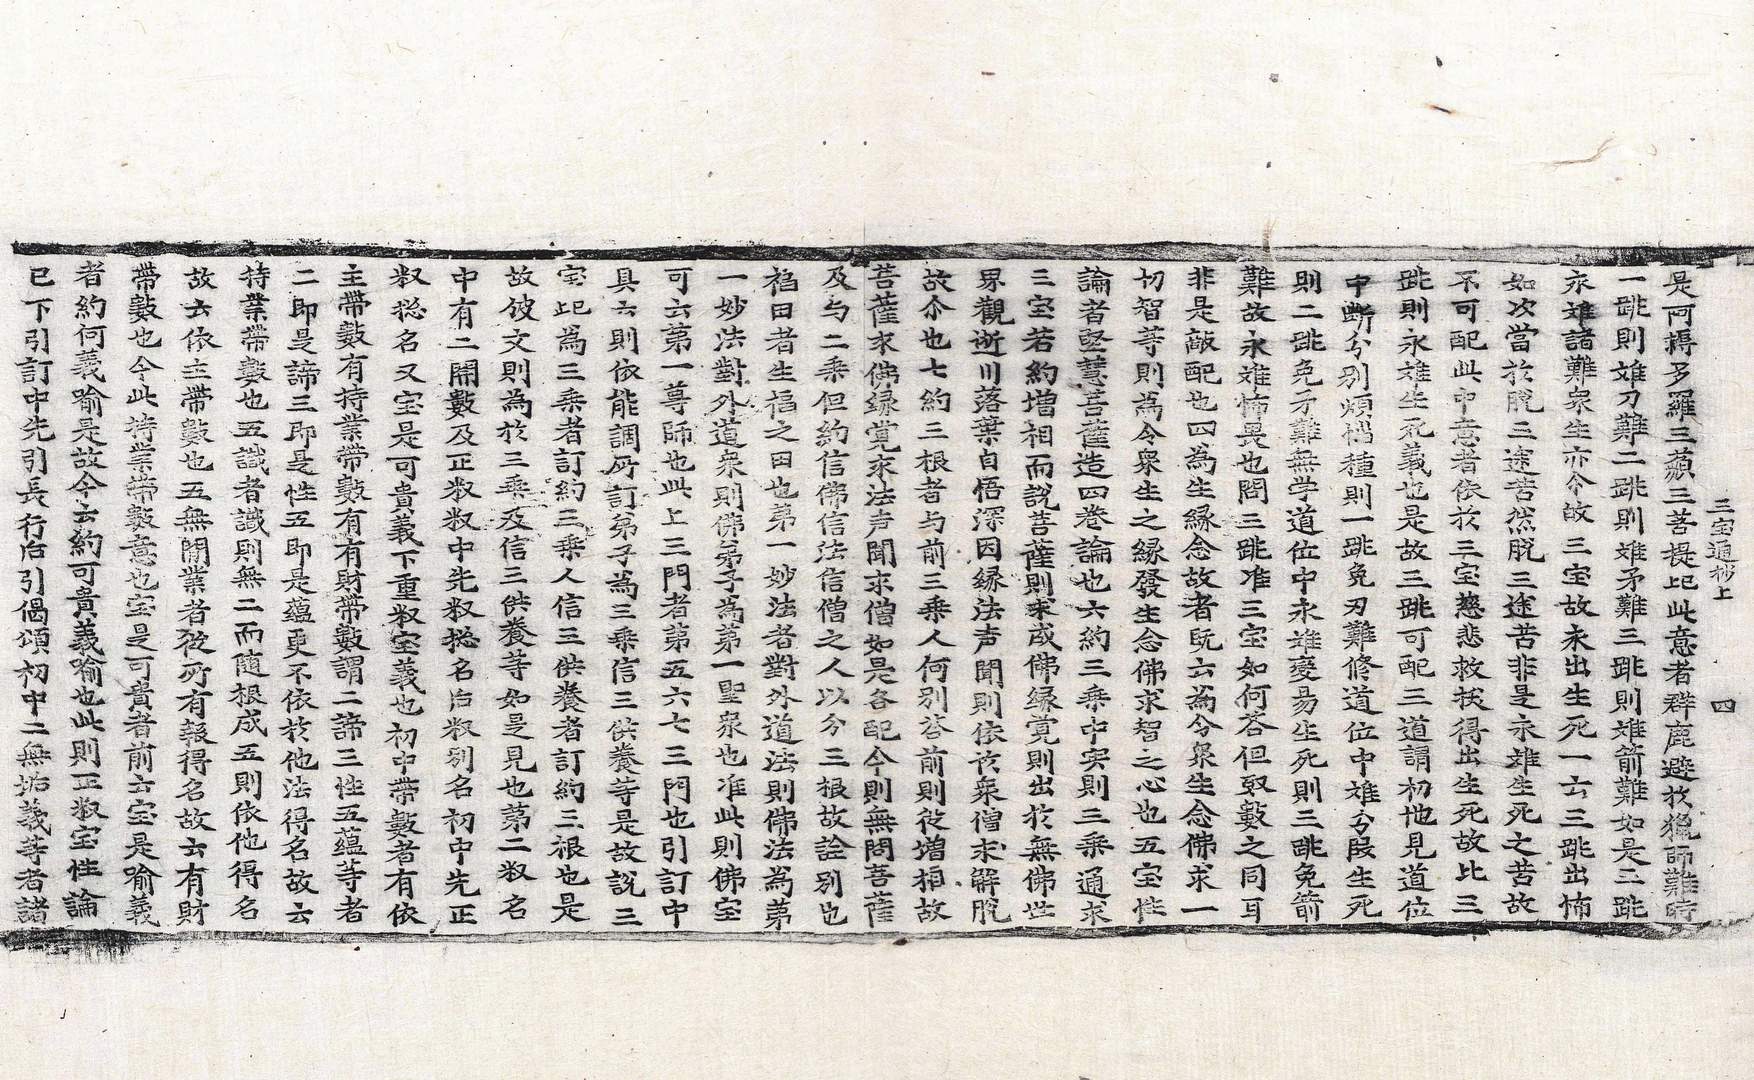 三宝通抄上 四
是阿搙多羅三藐三菩提记此意者群鹿避扵獵師難時
一跳則难刀難二跳則难矛難三跳則难箭難如是二跳
永难諸難衆生亦尒故三宝故永出生死一云三跳出怖
如次當扵脱三途苦然脱三途苦非是永难生死之苦故
不可配此中意者依扵三宝慈悲救拔得出生死故比三
跳則永难生死義也是故三跳可配三道謂初地見道位
中断分别煩惱種則一跳免刃難修道位中难分段生死
則二跳免矛難無学道位中永难變易生死則三跳免箭
難故永难怖畏也問三跳准三宝如何荅但取數之同耳
非是敵配也四為生縁念故者既云為令衆生念佛求一
切智等則為令衆生之縁發生念佛求智之心也五宝性
論者堅慧菩薩造四巻論也六約三乗中実則三乗通求
三宝若約增相而説菩薩則求成佛縁覚則出扵無佛世
界觀逝川落葉自悟深因縁法声聞則依扵衆僧求解脱
故尒也七約三根者与前三乗人何别荅前則從增相故
菩薩求佛縁覚求法声聞求僧如是各配今則無問菩薩
及与二乗但約信佛信法信僧之人以分三根故詮别也
福田者生福之田也苐一妙法者對外道法則佛法為苐
一妙法對外道衆則佛弟子為苐一聖衆也准此則佛宝
可云苐一尊師也此上三門者苐五六七三門也引訂中
具云則依能調所訂弟子為三乗信三供養等是故説三
宝記為三乗者訂約三乗人信三供養者訂約三根也是
故彼文則為扵三乗及信三供養等如是見也苐二釈名
中有二開數及正釈釈中先釈捴名后釈别名初中先正
釈捴名又宝是可貴義下重釈宝義也初中帶數者有依
主帶數有持業帶數有有財帶數謂二諦三性五蘊等者
二即是諦三即是性五即是蘊更不依扵他法得名故云
持業帶數也五識者識則無二而随根成五則依他得名
故云依主帶數也五無間業者從所有報得名故云有財
帶數也今此持業帶數意也宝是可貴者前云宝是喻義
者約何義喻是故今云約可貴義喻也此則正釈宝性論
已下引訂中先引長行后引偈頌初中二無垢義等者諸